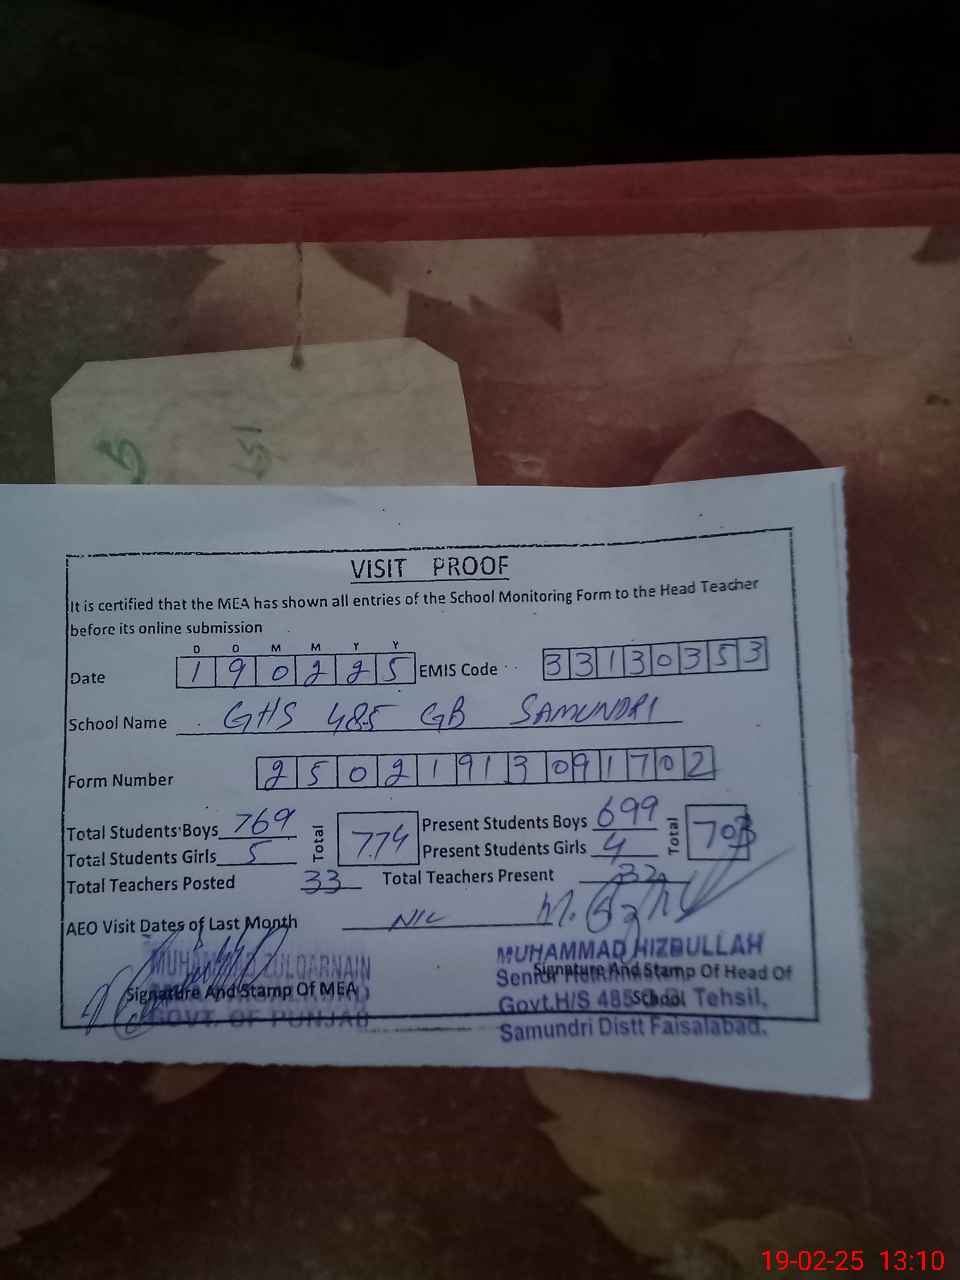 151
VISIT PROOF
It is certified that the MEA has shown all entries of the School Monitoring Form to the Head Teacher
before its online submission
D D M M Y Y
Date 190225 EMIS Code 33130353
School Name GHS 485 GB SAMUNDRI
Form Number 25021913091702
Total Students Boys 769 Total 774 Present Students Boys 699 Total 703
Total Students Girls 5 Present Students Girls 4
Total Teachers Posted 33 Total Teachers Present 32
AEO Visit Dates of Last Month NIL
MUHAMMAD ZULQARNAIN
Signature And Stamp Of MEA
GOVT. OF PUNJAB
MUHAMMAD HIZBULLAH
Senior
Signature And Stamp Of Head Of
School
Govt.H/S 485 Tehsil,
Samundri Distt Faisalabad.
19-02-25 13:10